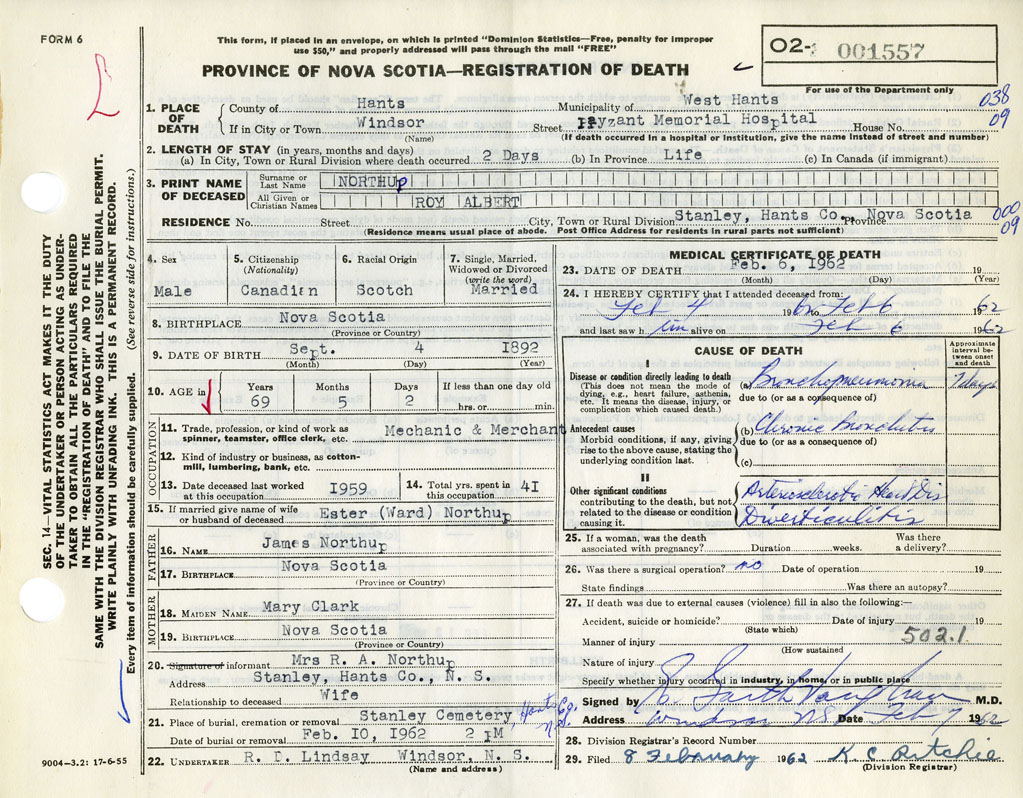 FORM 6
This form, if placed in an envelope, on which is printed "Dominion Statistics—Free, penalty for improper
use $50," and properly addressed will pass through the mail "FREE"
PROVINCE OF NOVA SCOTIA—REGISTRATION OF DEATH
O2- 001557
For use of the Department only
SEC. 14—VITAL STATISTICS ACT MAKES IT THE DUTY
OF THE UNDERTAKER OR PERSON ACTING AS UNDER-
TAKER TO OBTAIN ALL THE PARTICULARS REQUIRED
IN THE "REGISTRATION OF DEATH" AND TO FILE THE
SAME WITH THE DIVISION REGISTRAR WHO SHALL ISSUE THE BURIAL PERMIT.
WRITE PLAINLY WITH UNFADING INK. THIS IS A PERMANENT RECORD.
Every item of information should be carefully supplied. (See reverse side for instructions.)
1. PLACE OF DEATH
County of Hants Municipality of West Hants 038
If in City or Town Windsor Street Payzant Memorial Hospital House No. 09
(Name) (If death occurred in a hospital or institution, give the name instead of street and number)
2. LENGTH OF STAY (in years, months and days)
(a) In City, Town or Rural Division where death occurred 2 Days (b) In Province Life (c) In Canada (if immigrant)
3. PRINT NAME OF DECEASED
Surname or Last Name NORTHUp
All Given or Christian Names ROY ALBERT
RESIDENCE No. Street City, Town or Rural Division Stanley, Hants Co. Province Nova Scotia 000 09
(Residence means usual place of abode. Post Office Address for residents in rural parts not sufficient)
4. Sex Male
5. Citizenship (Nationality) Canadian
6. Racial Origin Scotch
7. Single, Married, Widowed or Divorced (write the word) Married
8. BIRTHPLACE Nova Scotia
(Province or Country)
9. DATE OF BIRTH Sept. 4 1892
(Month) (Day) (Year)
10. AGE in Years 69 Months 5 Days 2 If less than one day old hrs. or min.
OCCUPATION
11. Trade, profession, or kind of work as spinner, teamster, office clerk, etc. Mechanic & Merchant
12. Kind of industry or business, as cotton-mill, lumbering, bank, etc.
13. Date deceased last worked at this occupation 1959
14. Total yrs. spent in this occupation 41
15. If married give name of wife or husband of deceased Ester (Ward) Northup
FATHER
16. NAME James Northup
17. BIRTHPLACE Nova Scotia
(Province or Country)
MOTHER
18. MAIDEN NAME Mary Clark
19. BIRTHPLACE Nova Scotia
(Province or Country)
20. Signature of informant Mrs R. A. Northup
Address Stanley, Hants Co., N. S.
Relationship to deceased Wife
21. Place of burial, cremation or removal Stanley Cemetery Hants Co. N.S.
Date of burial or removal Feb. 10, 1962 2 PM
22. UNDERTAKER R. D. Lindsay Windsor, N. S.
(Name and address)
9004—3.2: 17-6-55
MEDICAL CERTIFICATE OF DEATH
23. DATE OF DEATH Feb. 6, 1962 19
(Month) (Day) (Year)
24. I HEREBY CERTIFY that I attended deceased from:
Feb 4 1962 to Feb 6 1962
and last saw h im alive on Feb 6 1962
CAUSE OF DEATH
Approximate interval between onset and death
I
Disease or condition directly leading to death
(This does not mean the mode of dying, e.g., heart failure, asthenia, etc. It means the disease, injury, or complication which caused death.)
(a) Bronchopneumonia 7 days
due to (or as a consequence of)
Antecedent causes
Morbid conditions, if any, giving rise to the above cause, stating the underlying condition last.
(b) Chronic Bronchitis
due to (or as a consequence of)
(c)
II
Other significant conditions
contributing to the death, but not related to the disease or condition causing it.
Arteriosclerotic Heart Dis
Diverticulitis
25. If a woman, was the death associated with pregnancy? Duration weeks. Was there a delivery?
26. Was there a surgical operation? no Date of operation 19
State findings Was there an autopsy?
27. If death was due to external causes (violence) fill in also the following:—
Accident, suicide or homicide? Date of injury 19
(State which)
Manner of injury 502.1
(How sustained
Nature of injury
Specify whether injury occurred in industry, in home, or in public place
Signed by M.D.
Address Windsor NS Date Feb 7 1962
28. Division Registrar's Record Number
29. Filed 8 February 1962 K C Ritchie
(Division Registrar)